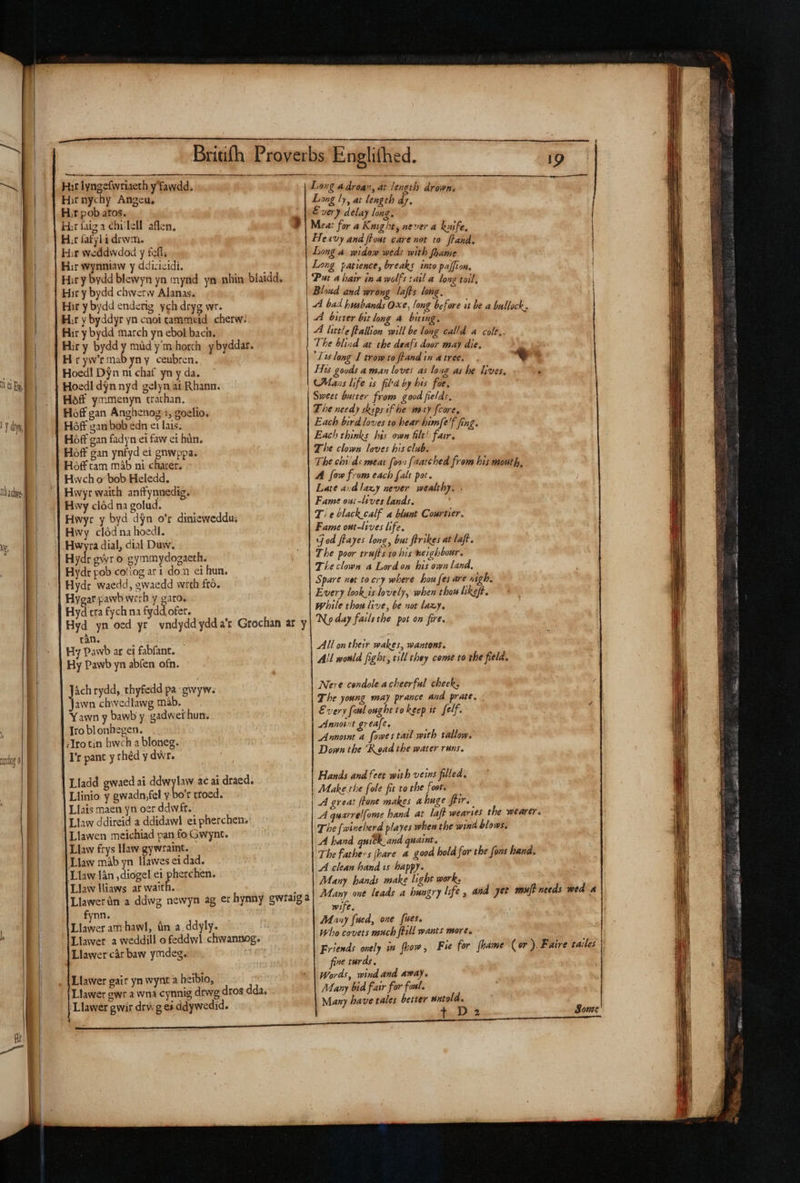 Britiſh Proverbs Engliſhed. 19
Hir lyngeſwriaeth y fawdd.
Hir nychy Angeu.
Hir pob aros.
Hir ſaig a chilell aſlen.
Hir ſafyl i drwm.
Hir weddwdod y feſl.
Hir wynniaw y ddiricidi.
Hir y bydd blewyn yn mynd yn nhin blaidd.
Hir y bydd chwerw Alanas.
Hir y bydd enderig ych dryg wr.
Hir y byddyr yn cnoi tammeid cherw.
Hir y bydd march yn ebol bach.
Hir y bydd y mûd y'm horth y byddar.
Hir yw'r mab yn y ceubren.
Hoedl Dŷn ni chaſ yn y da.
Hoedl dŷn nyd gelyn ai Rhann.
Hôff ymmenyn trathan.
Hôff gan Anghenog i, goelio.
Hôff gan bob edn ei lais.
Hôff gan fadyn ei faw ei hûn.
Hôff gan ynfyd ei gnwppa.
Hôff tam mâb ni charer.
Hwch o bob Heledd.
Hwyr waith anffynnedig.
Hwy clôd na golud.
Hwyr y byd dŷn o'r dinieweddu;
Hwy clôd na hoedl.
Hwyra dial, dial Duw.
Hydr gwr o gymmydogaeth.
Hydr pob costog ar i dom ei hun.
Hydr waedd, gwaedd wrth frô.
Hygar pawb wrth y garo.
Hyd tra fych na fydd ofer.
Hyd yn oed yr vndydd ydd a'r Grochan ar y
tân.
Hy Pawb ar ei fabſant.
Hy Pawb yn abſen ofn.
Jâch rydd, rhyfedd pa gwyw.
Jawn chwedlawg mâb.
Yawn y bawb y gadwei hun.
Iro blonhegen.
Iro tin hwch a bloneg.
I'r pant y rhêd y dŵr.
Lladd gwaed ai ddwylaw ac ai draed.
Llinio y gwadn, ſel y bo'r troed.
Llais maen yn oer ddwfr.
Llaw ddireid a ddidawl ei pherchen.
Llawen meichiad pan fo Gwynt.
Llaw frys llaw gywraint.
Llaw mâb yn llawes ei dad.
Llaw lân, diogel ei pherchen.
Llaw lliaws ar waith.
Llawer ûn a ddwg newyn ag er hynny gwraig a
fynn.
Llawer am hawl, ûn a ddyly.
Llawer a weddill o feddwl chwannog.
Llawer câr baw ymdeg.
Llawer gair yn wynt a heibio,
Llawer gwr a wna cynnig drwg dros dda.
Llawer gwir drwg ei ddywedid.
Long a droan, at length drown.
Long ly, at length dy.
Every delay long.
Meat for a Knight, never a knife.
Heavy and ſtout care not to ſtand.
Long a widow weds with ſhame
Long patience, breaks into paſſion.
Put a hair in a wolfs tail a long toil.
Bloud and wrong laſts long.
A bad husbands Oxe, long before it be a bullock.
A bitter bit long a biting.
A little ſtallion will be long call'd a colt.
The blind at the deafs door may die.
'Tis long I trow to ſtand in a tree.
His goods a man loves as long as he lives.
Mans life is fil'd by his foe.
Sweet butter from good fields.
The needy skips if he may ſcore.
Each bird loves to hear himſelf ſing.
Each thinks his own filt' fair.
The clown loves his club.
The childs meat foes ſnatched from his mouth.
A ſow from each ſalt pot.
Late and lazy never wealthy.
Fame out-lives lands.
The black calf a blunt Courtier.
Fame out-lives life.
God ſtayes long, but ſtrikes at laſt.
The poor truſts to his neighbour.
The clown a Lord on his own land.
Spare not to cry where houſes are nigh.
Every look is lovely, when thou likeſt.
While thou live, be not lazy.
No day fails the pot on fire.
All on their wakes, wantons.
All would fight, till they come to the field.
Nere condole a cheerful cheek,
The young may prance and prate.
Every ſoul ought to keep it ſelf.
Annoint greaſe.
Annoint a ſowes tail with tallow.
Down the Road the water runs.
Hands and feet with veins filled.
Make the ſole fit to the foot.
A great ſtone makes a huge ſtir.
A quarrelſome hand at laſt wearies the wearer.
The ſwineherd playes when the wind blows.
A hand quick and quaint.
The fathers ſhare a good hold for the ſons hand.
A clean hand is happy.
Many hands make light work.
Many one leads a hungry life, and yet muſt needs wed a
wife.
Many ſued, one ſues.
Who covets much ſtill wants more.
Friends onely in ſhow, Fie for ſhame (or) Faire tailes
fine turds.
Words, wind and away.
Many bid fair for foul.
Many have tales better untold.
† D 2 Some